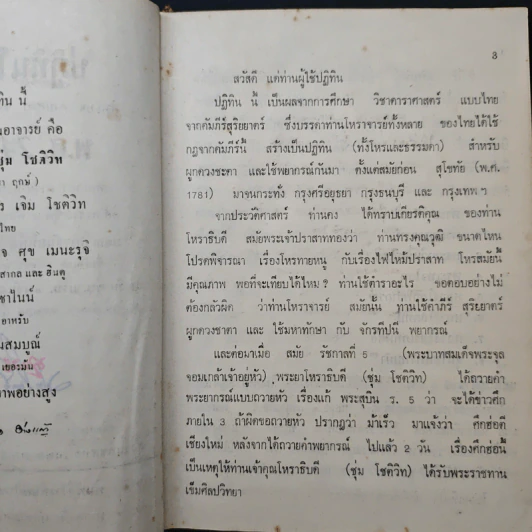 ทิน นี้
นอาจารย์ คือ
ชุ่ม โชติวิท
ฤกษ์ )
ร เจิม โชติวิท
ไทย
จ ศุข เมนะรุจิ
สากล และ ฮินดู
ชาไนน์
อาหรับ
มสมบูรณ์
เยอรมัน
าพอย่างสูง
3
สวัสดี แด่ท่านผู้ใช้ปฏิทิน
ปฏิทิน นี้ เป็นผลจากการศึกษา วิชาดาราศาสตร์ แบบไทย
จากคัมภีร์สุริยยาตร์ ซึ่งบรรดาท่านโหราจารย์ทั้งหลาย ของไทยได้ใช้
กฎจากคัมภีร์นี้ สร้างเป็นปฏิทิน (ทั้งโหรและธรรมดา) สำหรับ
ผูกดวงชะตา และใช้พยากรณ์กันมา ตั้งแต่สมัยก่อน สุโขทัย (พ.ศ.
1781) มาจนกระทั่ง กรุงศรีอยุธยา กรุงธนบุรี และ กรุงเทพ ฯ
จากประวัติศาสตร์ ท่านคง ได้ทราบเกียรติคุณ ของท่าน
โหราธิบดี สมัยพระเจ้าปราสาททองว่า ท่านทรงคุณวุฒิ ขนาดไหน
โปรดพิจารณา เรื่องโหรทายหนู กับเรื่องไฟไหม้ปราสาท โหรสมัยนี้
มีคุณภาพ พอที่จะเทียบได้ไหม ? ท่านใช้ตำราอะไร ขอตอบอย่างไม่
ต้องกลัวผิด ว่าท่านโหราจารย์ สมัยนั้น ท่านใช้คำภีร์ สุริยยาตร์
ผูกดวงชาตา และ ใช้มหาทักษา กับ จักรทีปนี พยากรณ์
และต่อมาเมื่อ สมัย รัชกาลที่ 5 (พระบาทสมเด็จพระจุล
จอมเกล้าเจ้าอยู่หัว) พระยาโหราธิบดี (ชุ่ม โชติวิท) ได้ถวายคำ
พระยากรณ์แบบถวายหัว เรื่องแก้ พระสุบิน ร. 5 ว่า จะได้ข่าวศึก
ภายใน 3 ถ้าผิดขอถวายหัว ปรากฏว่า ม้าเร็ว มาแจ้งว่า ศึกฮ่อตี
เชียงใหม่ หลังจากได้ถวายคำพยากรณ์ ไปแล้ว 2 วัน เรื่องศึกฮ่อนี้
เป็นเหตุให้ท่านเจ้าคุณโหราธิบดี (ชุ่ม โชติวิท) ได้รับพระราชทาน
เข็มศิลปวิทยา